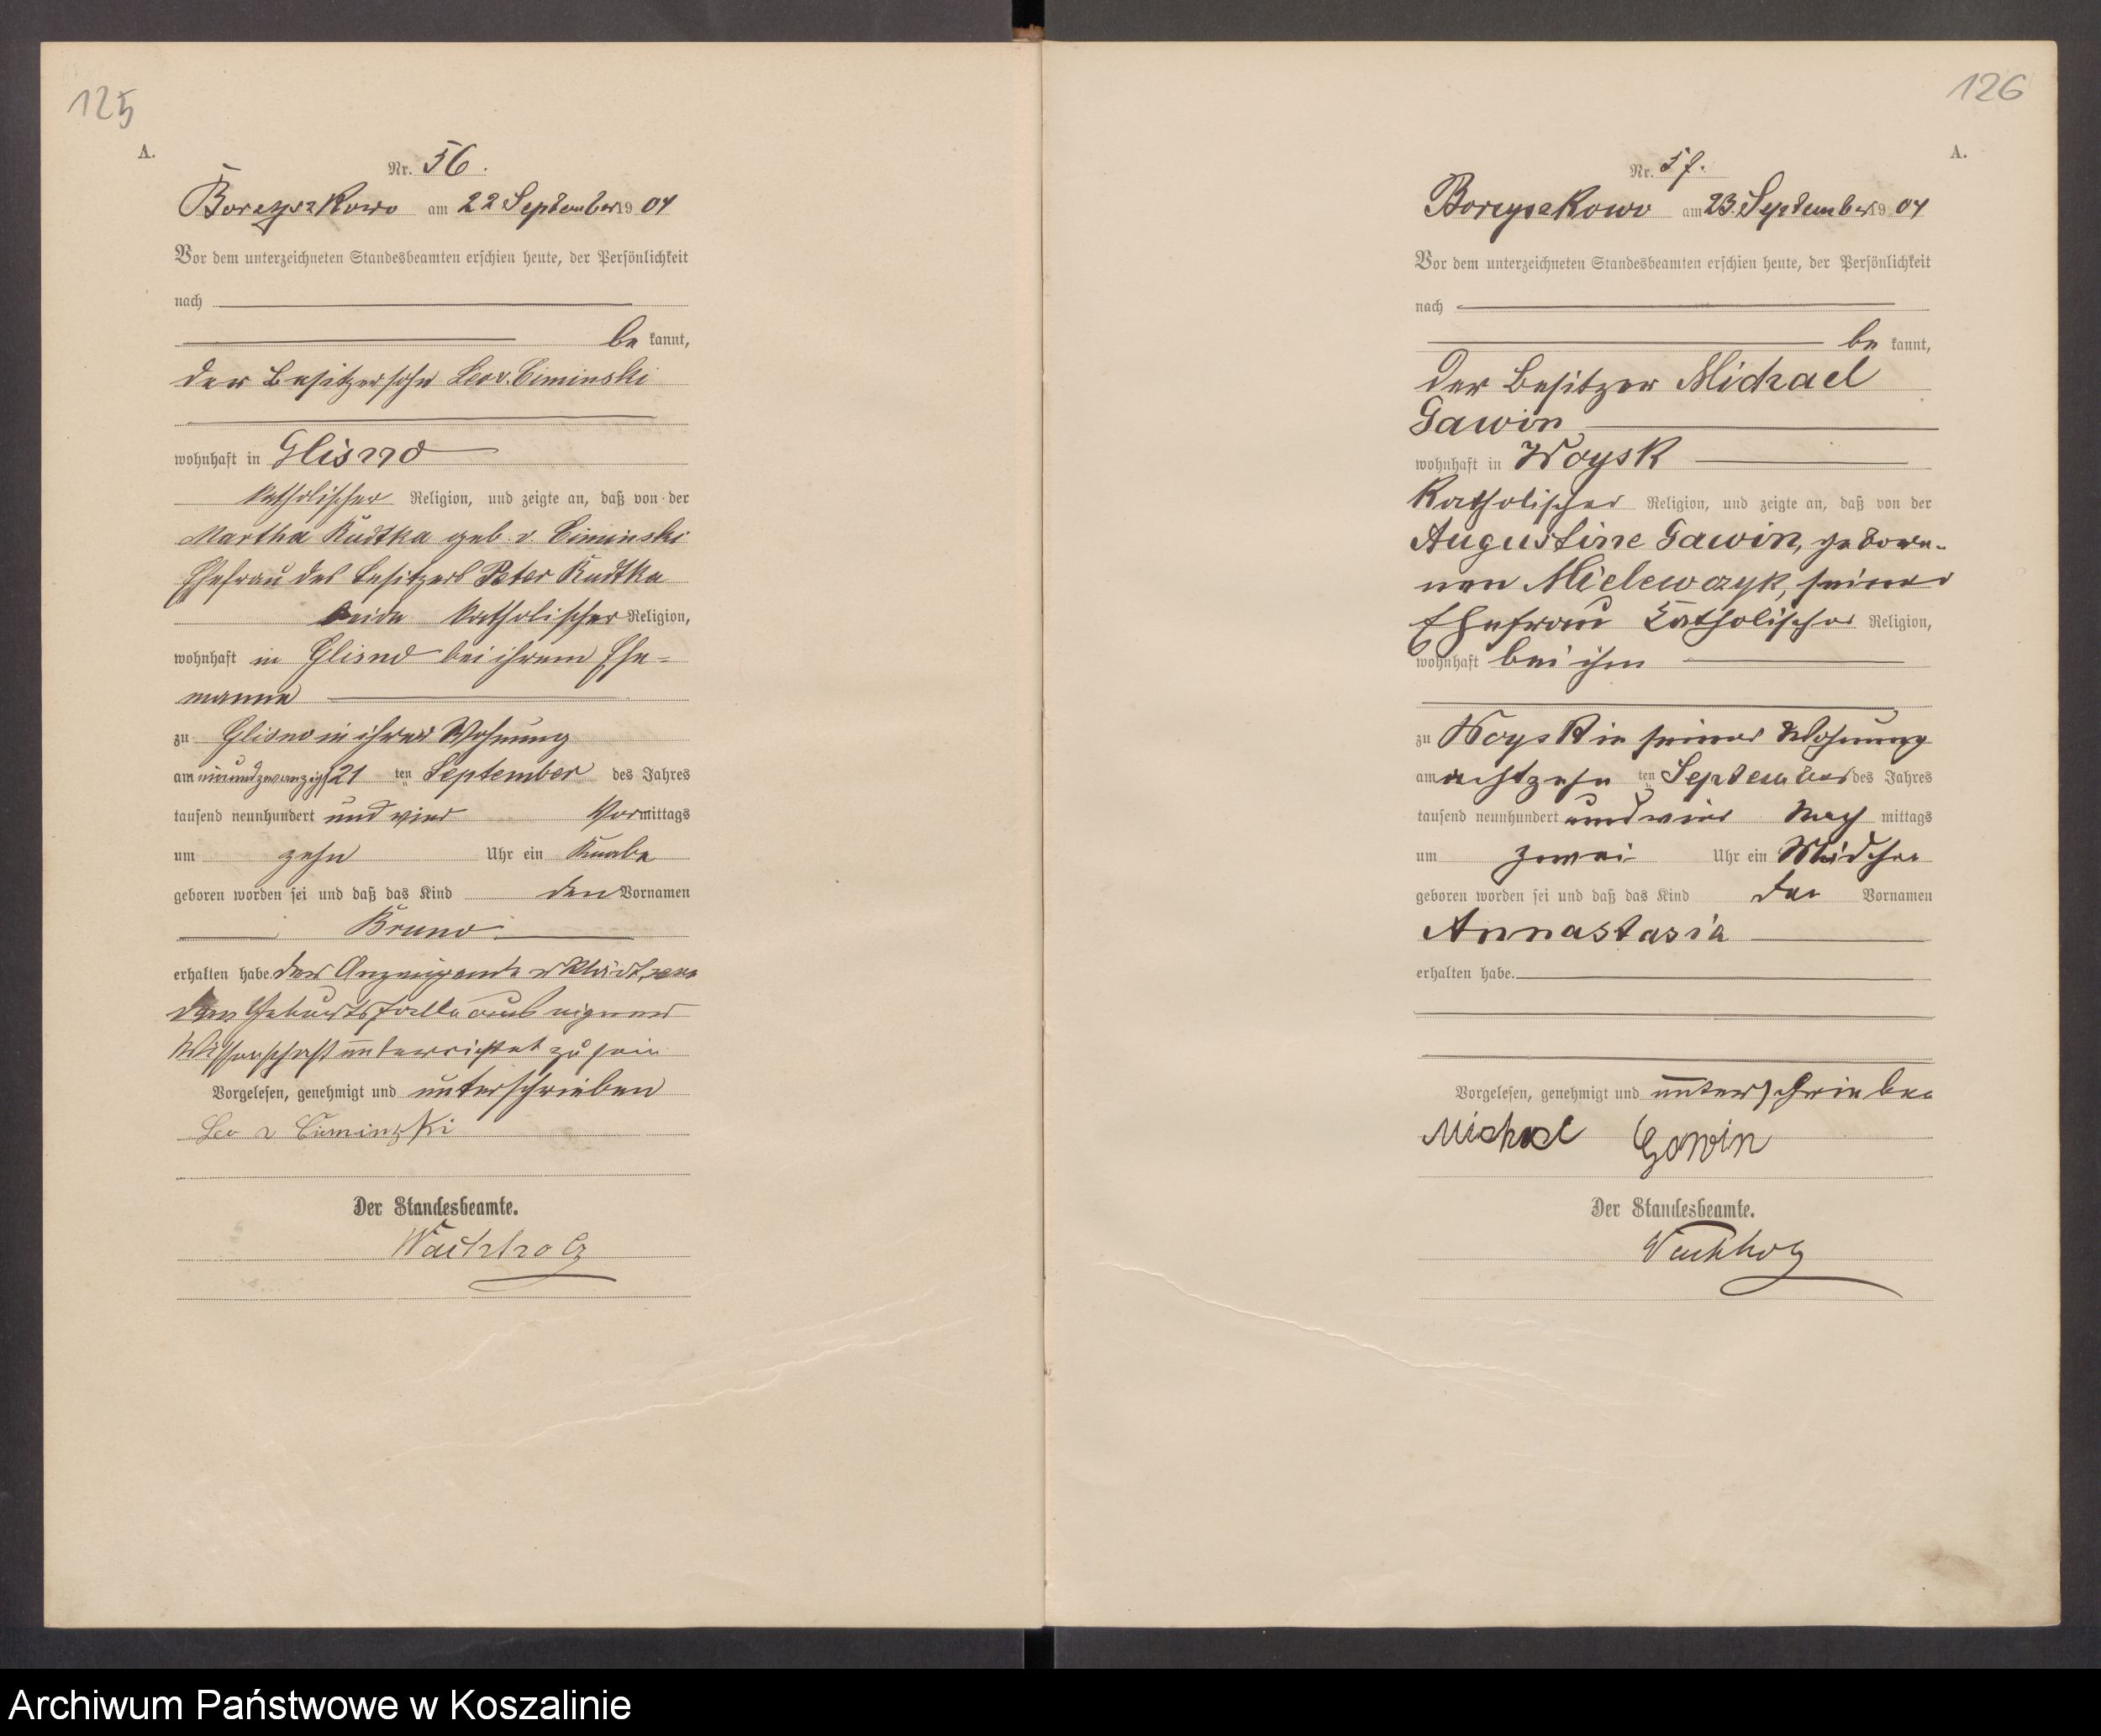 125
A.
Nr. 56.
Borzyszkowo am 22 September 1904
Vor dem unterzeichneten Standesbeamten erschien heute, der Persönlichkeit
nach
be kannt,
der Besitzersohn Leo v. Ciminski
wohnhaft in Glisno
katholischer Religion, und zeigte an, daß von der
Martha Kudtka geb. v. Ciminski
Ehefrau des Besitzers Peter Kudtka
beide katholischer Religion,
wohnhaft in Glisno bei ihrem Ehe=
manne
zu Glisno in ihrer Wohnung
am einundzwanzigst 21 ten September des Jahres
tausend neunhundert und vier Vormittags
um zehn Uhr ein Knabe
geboren worden sei und daß das Kind den Vornamen
Bruno
erhalten habe. der Anzeigende erklärt, von
dem Geburtsfalle aus eigener
Wissenschaft unterrichtet zu sein
Vorgelesen, genehmigt und unterschrieben
Leo v Ciminski
Der Standesbeamte.
Wachholz
126
A.
Nr. 57.
Borzyszkowo am 23. September 1904
Vor dem unterzeichneten Standesbeamten erschien heute, der Persönlichkeit
nach
be kannt,
der Besitzer Michael
Gawin
wohnhaft in Woysk
katholischer Religion, und zeigte an, daß von der
Augustine Gawin, gebore-
nen Mielewczyk, seiner
Ehefrau katholischer Religion,
wohnhaft bei ihm
zu Woysk in seiner Wohnung
am achtzehn ten September des Jahres
tausend neunhundert und vier Nach mittags
um zwei Uhr ein Mädchen
geboren worden sei und daß das Kind den Vornamen
Annastasia
erhalten habe.
Vorgelesen, genehmigt und unterschrieben
Michael Gawin
Der Standesbeamte.
Wachholz
Archiwum Państwowe w Koszalinie